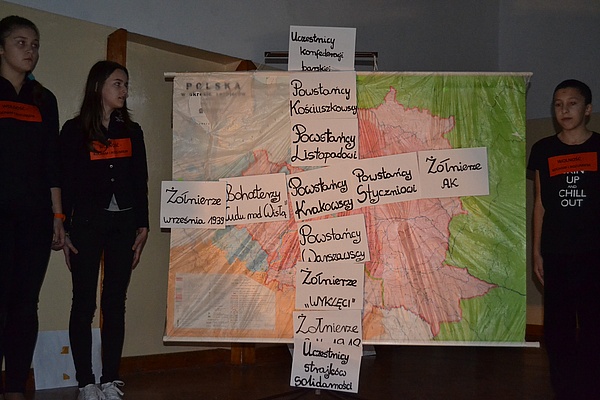 Uczestnicy
konfederacji
barskiej
POLSKA
Powstańcy
Kościuszkowscy
Powstańcy
Listopadoci
Żołnierze
września 1939
Bohaterzy
Cudu nad Wisłą
Powstańcy
Krakowscy
Powstańcy
Styczniaci
Żołnierze
AK
Powstańcy
Warszawscy
Żołnierze
„WYKLĘCI"
Żołnierze
Uczestnicy
strajków
solidarności
UP
AND
CHILL
OUT